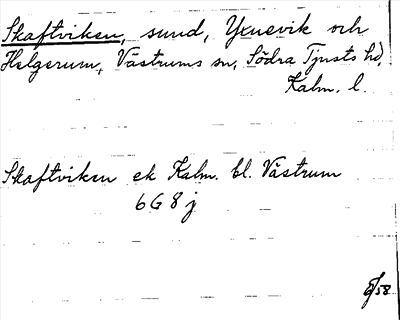 Skaftviken, sund, Yxnevik och
Helgerum, Västrums sn, Södra Tjusts hd,
Kalm. l.
Skaftviken ek Kalm. bl. Västrum
6G8j
/58